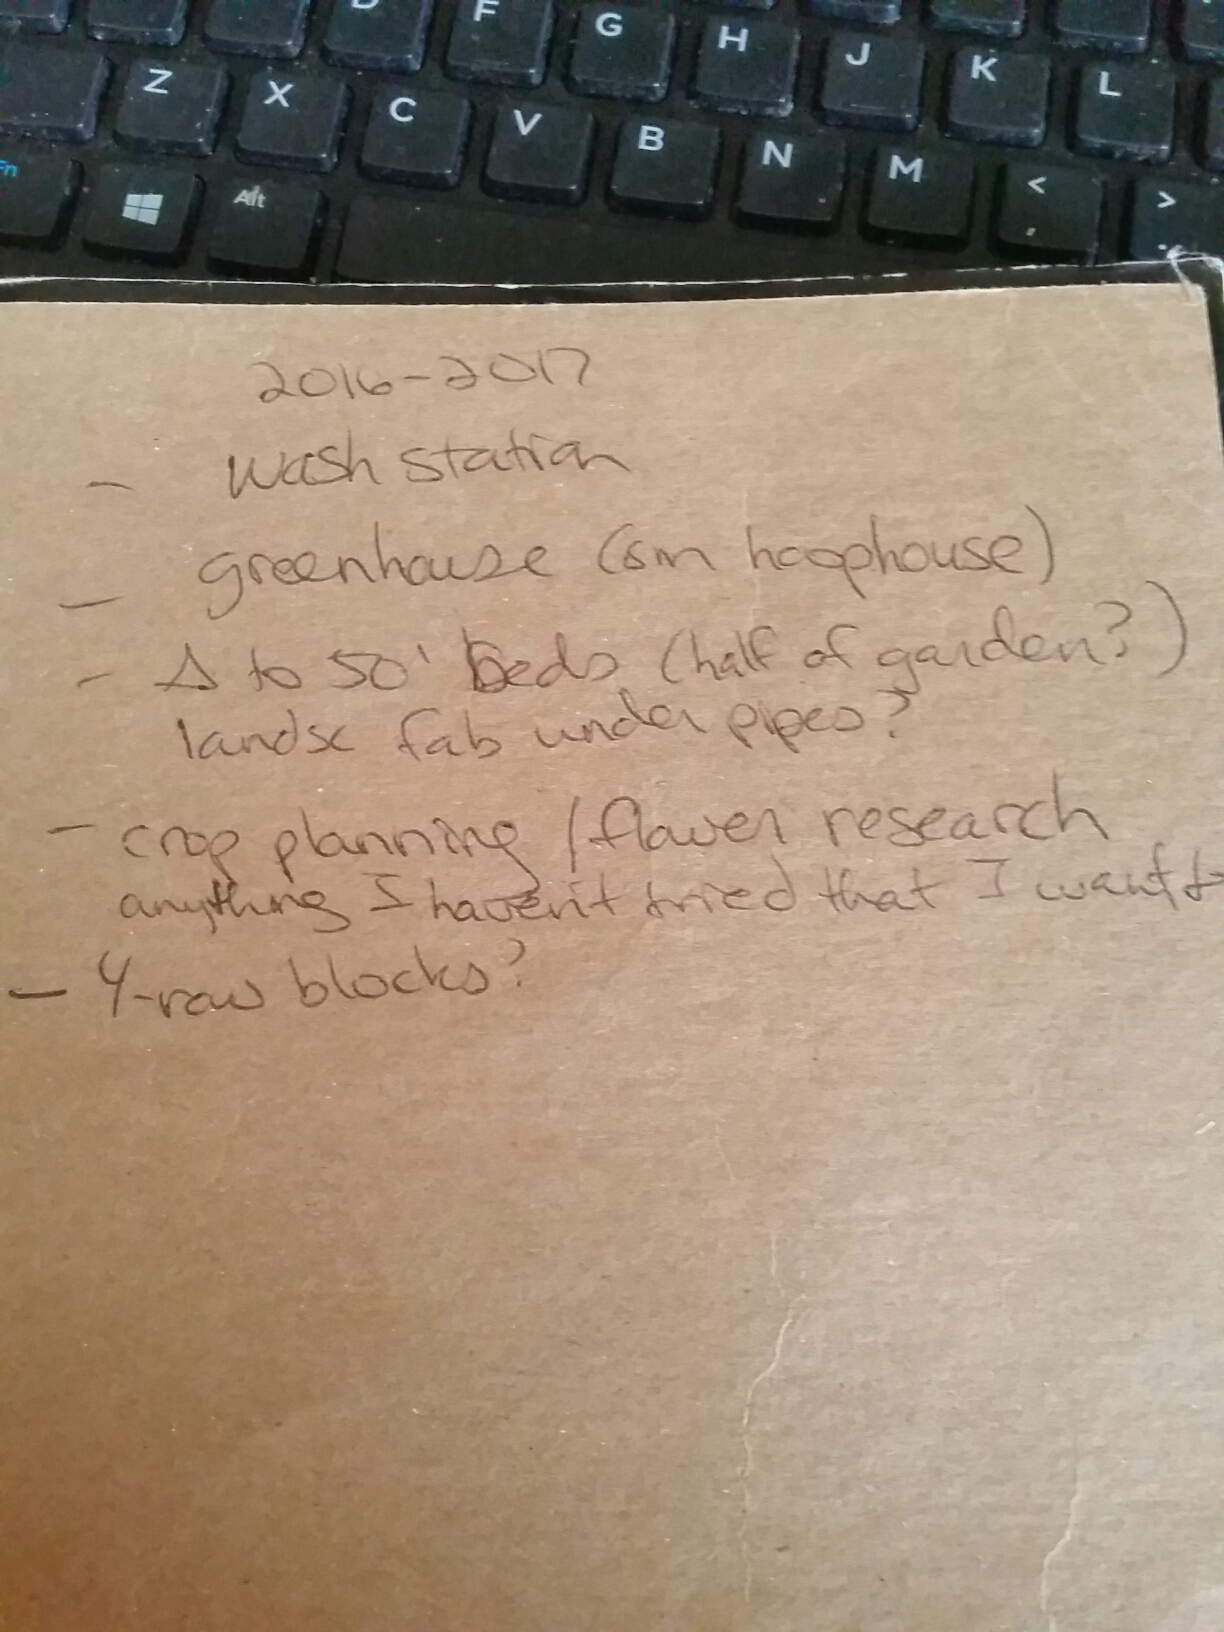 D F G H J K L
Z X C V B N M < ,  > .
Fn Alt
2016-2017
- wash station
- greenhouse (sm hoophouse)
- Δ to 50' beds (half of garden?)
landsc fab under pipes?
- crop planning / flower research
anything I haven't tried that I want to
- 4-row blocks?